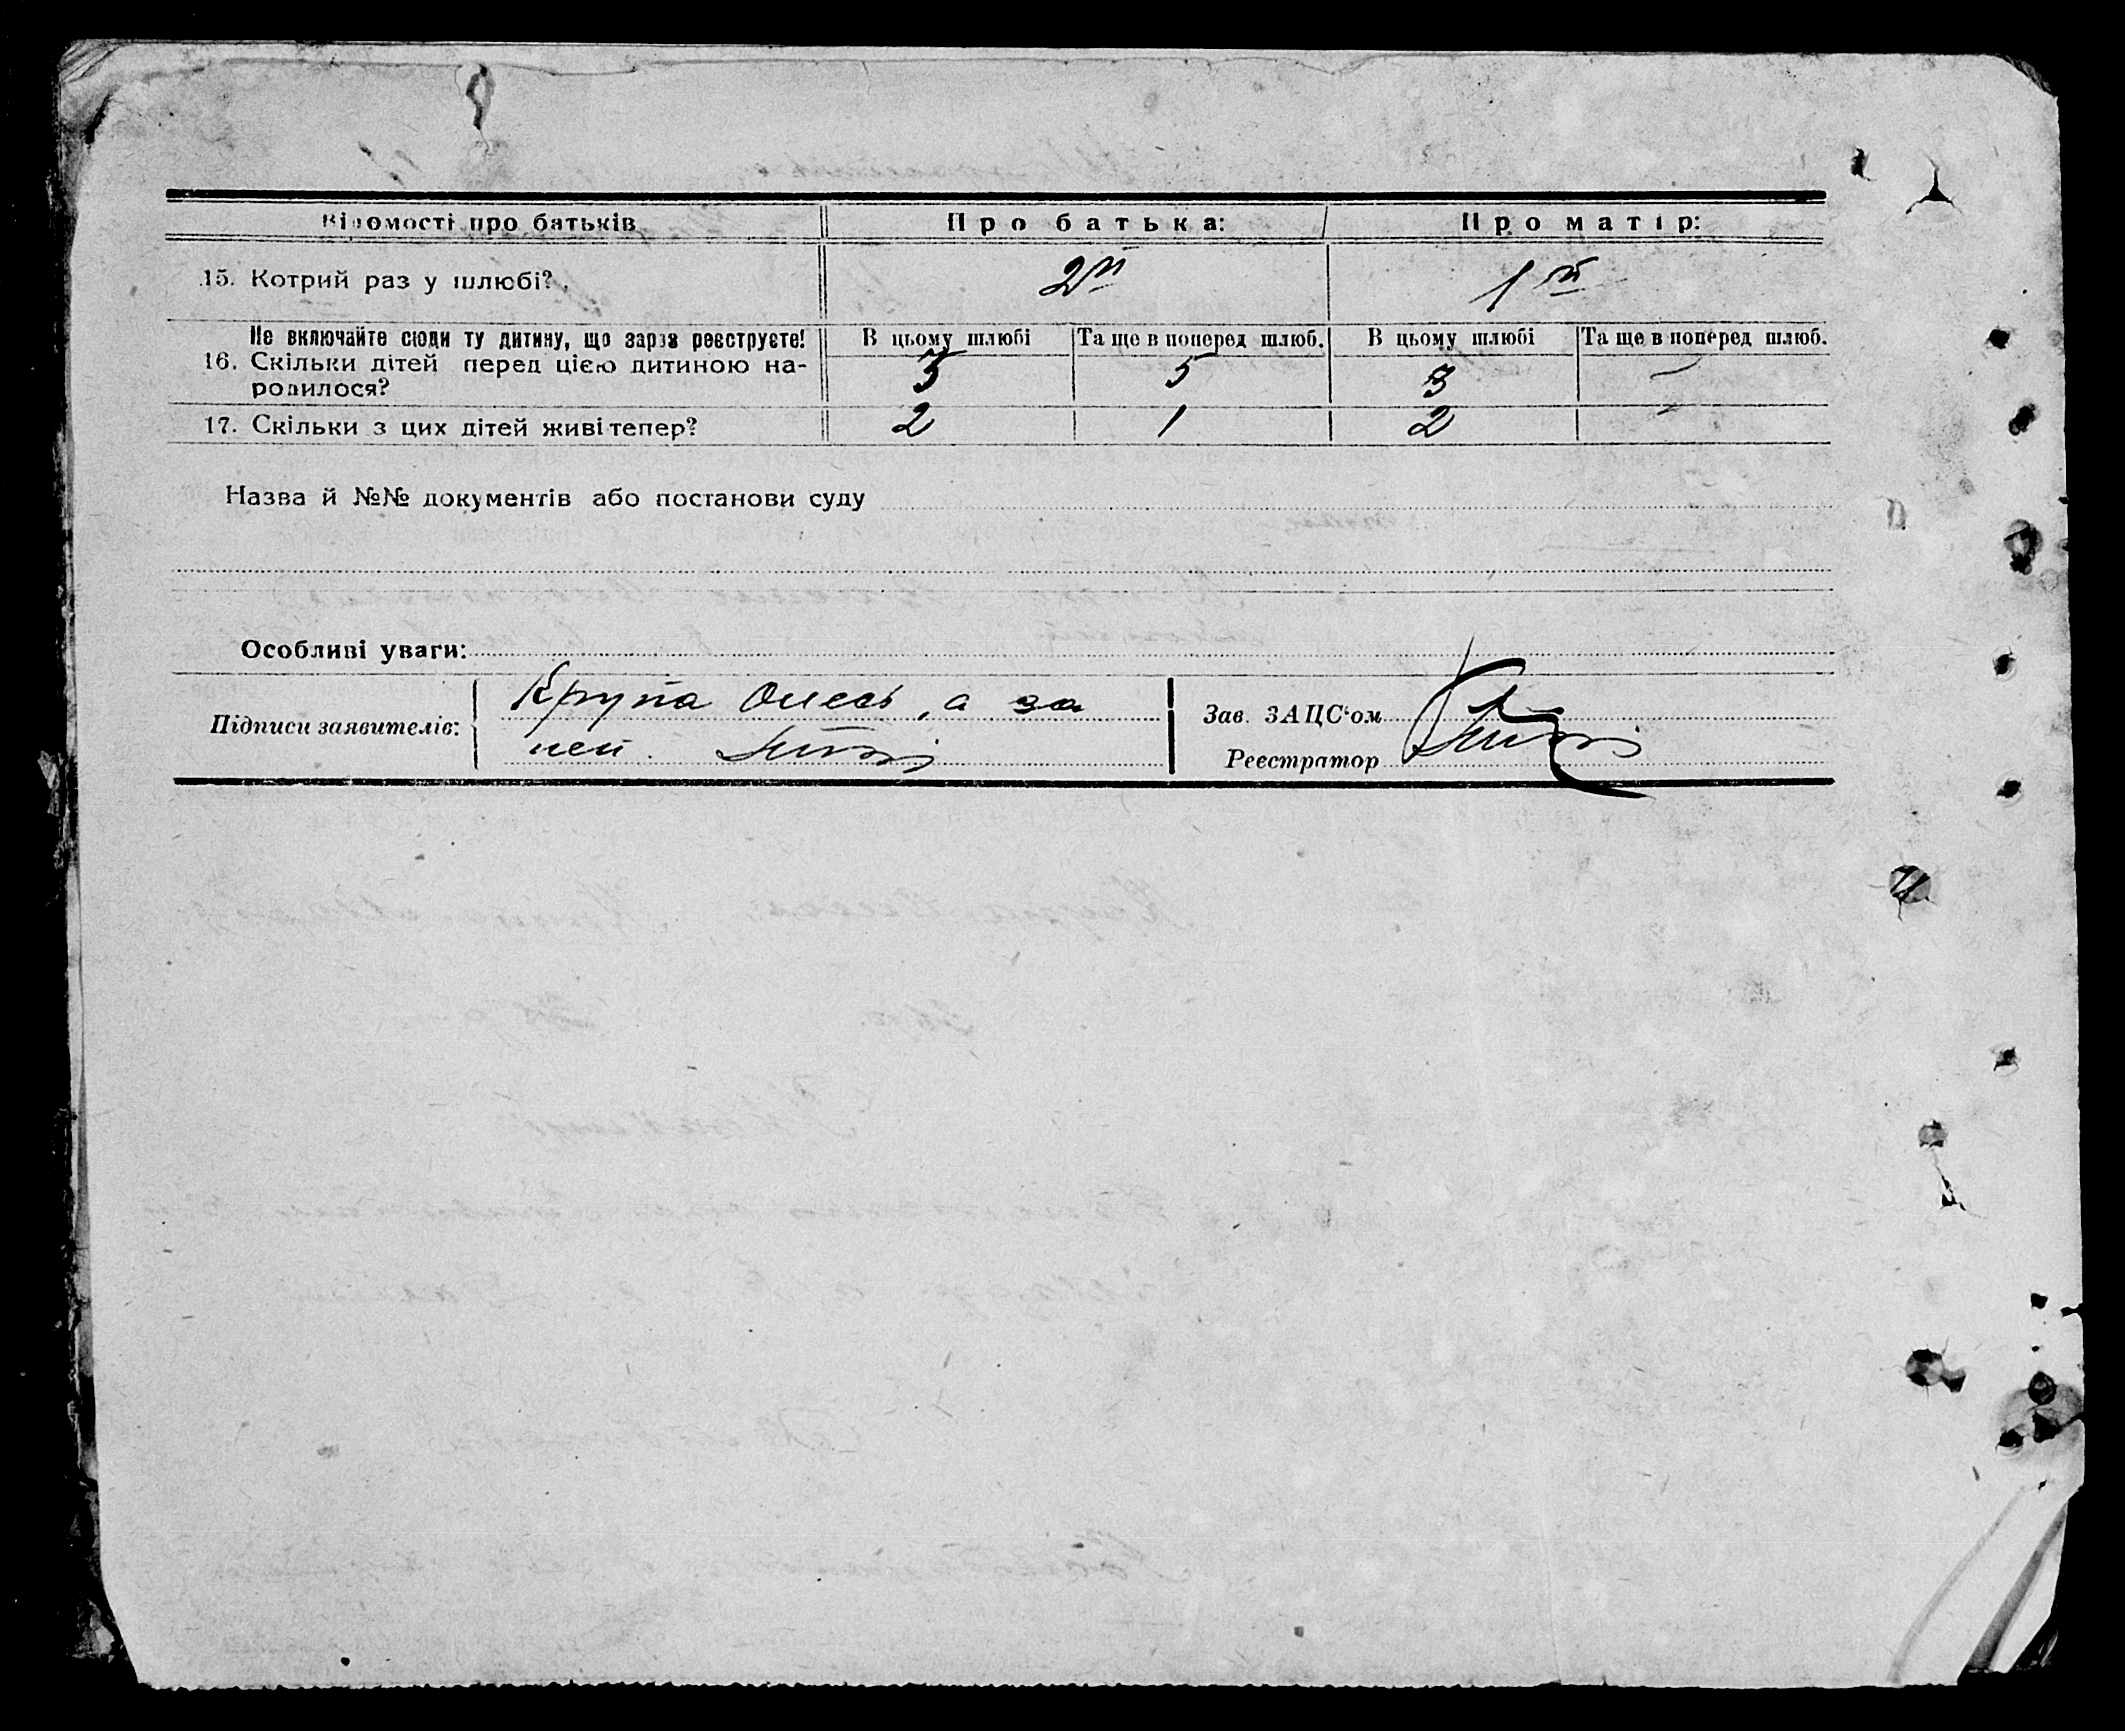 Відомості про батьків Про батька: Про матір:
15. Котрий раз у шлюбі? 2й 1й
Не включайте сюди ту дитину, що зараз реєструєте! В цьому шлюбі Та ще в поперед шлюб. В цьому шлюбі Та ще в поперед шлюб.
16. Скільки дітей перед цією дитиною на- 5 3 –
родилося?
17. Скільки з цих дітей живі тепер? 2 1 2 –
Назва й №№ документів або постанови суду
Особливі уваги:
Крупа Олесь, а за
Підписи заявителів: Зав. ЗАЦС'ом
неи.
Реєстратор